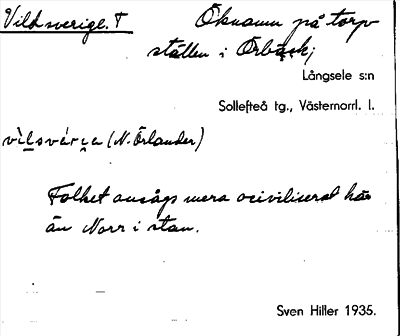 Vildsverige. T Öknamn på torp
ställen i Örbäck;
Långsele s:n
Sollefteå tg., Västernorrl. l.
vìlsvárịa (N. Örlander)
Folket ansågs mera ociviliserat här
än Norr i stan.
Sven Hiller 1935.